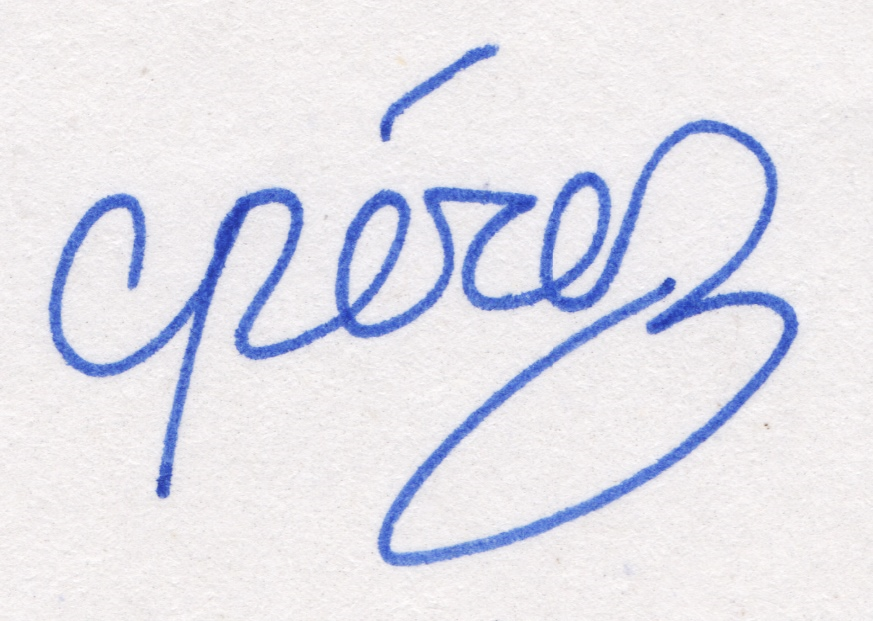 cpérez